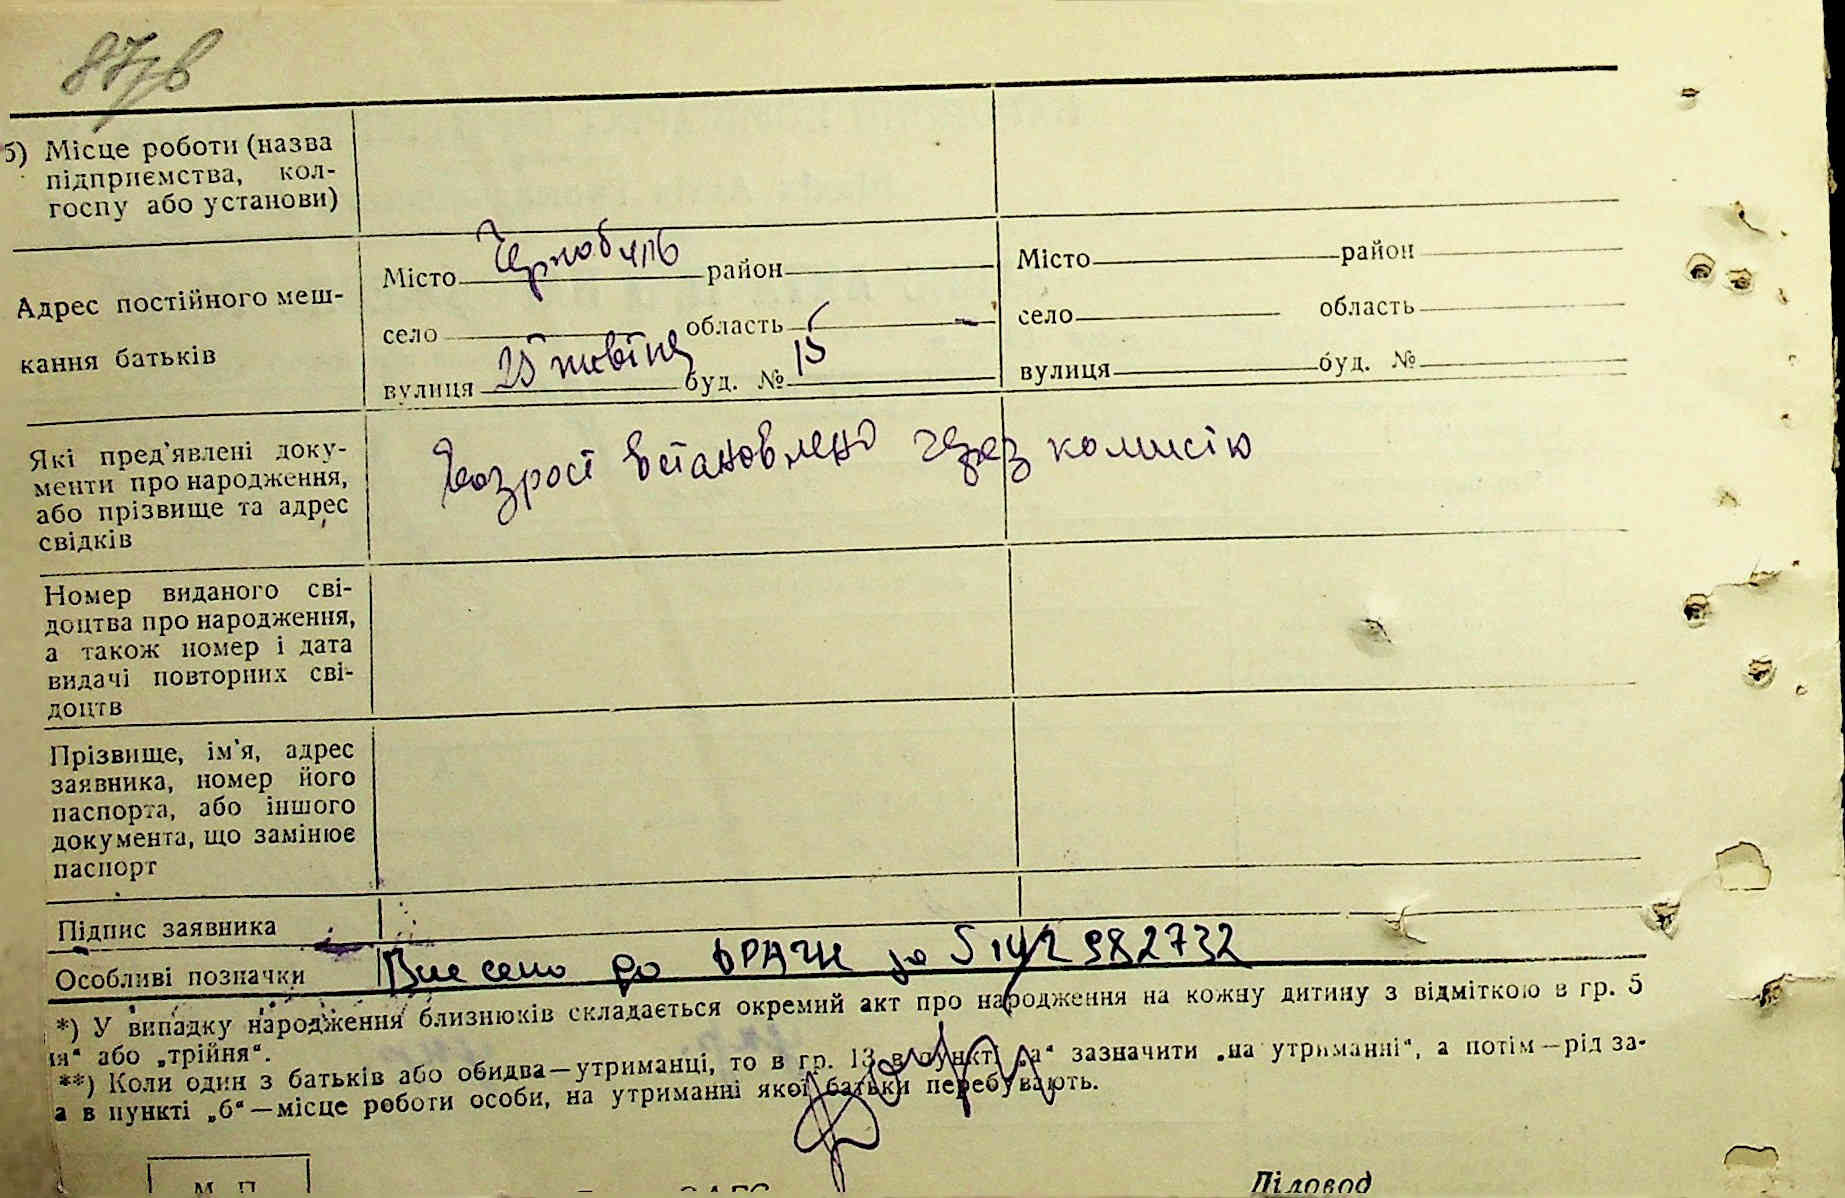 87/в
б) Місце роботи (назва
підприємства, кол-
госпу або установи)
Адрес постійного меш-
кання батьків
Місто Чернобиль район
село область
вулиця 25 жовтня буд. № 15
Місто район
село область
вулиця буд. №
Які пред'явлені доку-
менти про народження,
або прізвище та адрес
свідків
Возрост встановлено через комисію
Номер виданого сві-
доцтва про народження,
а також номер і дата
видачі повторних сві-
доцтв
Прізвище, ім'я, адрес
заявника, номер його
паспорта, або іншого
документа, що замінює
паспорт
Підпис заявника
Особливі позначки Внесено до ДРАЦС за
*) У випадку народження близнюків складається окремий акт про народження на кожну дитину з відміткою в гр. 5
ня" або „трійня".
**) Коли один з батьків або обидва—утриманці, то в гр. 13 в пункті „а" зазначити „на утриманні", а потім—рід за-
а в пункті „б"—місце роботи особи, на утриманні якої батьки перебувають.
М. П.
ЗАГС
Діловод